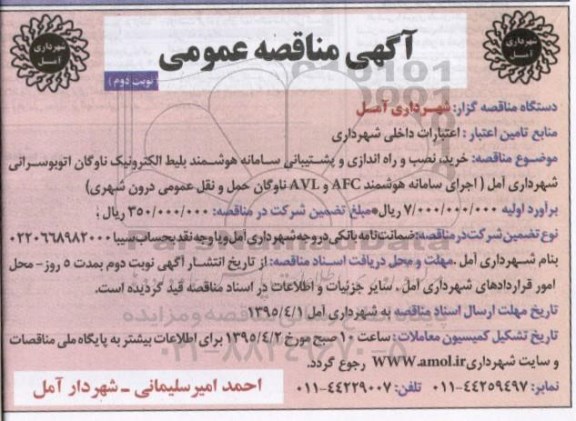 شهرداری آمل
آگهی مناقصه عمومی
شهرداری آمل
(نوبت دوم)
دستگاه مناقصه گزار: شهرداری آمل
منابع تامین اعتبار : اعتبارات داخلی شهرداری
موضوع مناقصه: خرید، نصب و راه اندازی و پشتیبانی سامانه هوشمند بلیط الکترونیک ناوگان اتوبوسرانی
شهرداری آمل ( اجرای سامانه هوشمند AFC و AVL ناوگان حمل و نقل عمومی درون شهری)
برآورد اولیه ۷/۰۰۰/۰۰۰/۰۰۰ ریال*مبلغ تضمین شرکت در مناقصه: ۳۵۰/۰۰۰/۰۰۰ ریال ؛
نوع تضمین شرکت در مناقصه: ضمانت نامه بانکی در وجه شهرداری آمل و یا وجه نقد بحساب سیبا ۰۲۲۰۶۶۸۹۸۲۰۰۰
بنام شهرداری آمل .مهلت و محل دریافت اسناد مناقصه: از تاریخ انتشار آگهی نوبت دوم بمدت ۵ روز- محل
امور قراردادهای شهرداری آمل. سایر جزئیات و اطلاعات در اسناد مناقصه قید گردیده است.
تاریخ مهلت ارسال اسناد مناقصه به شهرداری آمل ۱۳۹۵/۴/۱
تاریخ تشکیل کمیسیون معاملات : ساعت ۱۰ صبح مورخ ۱۳۹۵/۴/۲ برای اطلاعات بیشتر به پایگاه ملی مناقصات
و سایت شهرداری www.amol.ir رجوع گردد.
نمابر: ۴۴۲۵۹۴۹۷-۰۱۱ تلفن: ۴۴۲۲۹۰۰۷-۰۱۱
احمد امیرسلیمانی - شهردار آمل